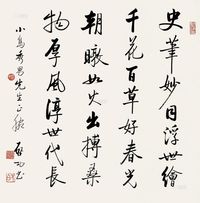 史筆妙同浮世繪
千花百草好春光
朝暾如火出搏桑
物厚風淳世代長
小島秀男先生正
啟功